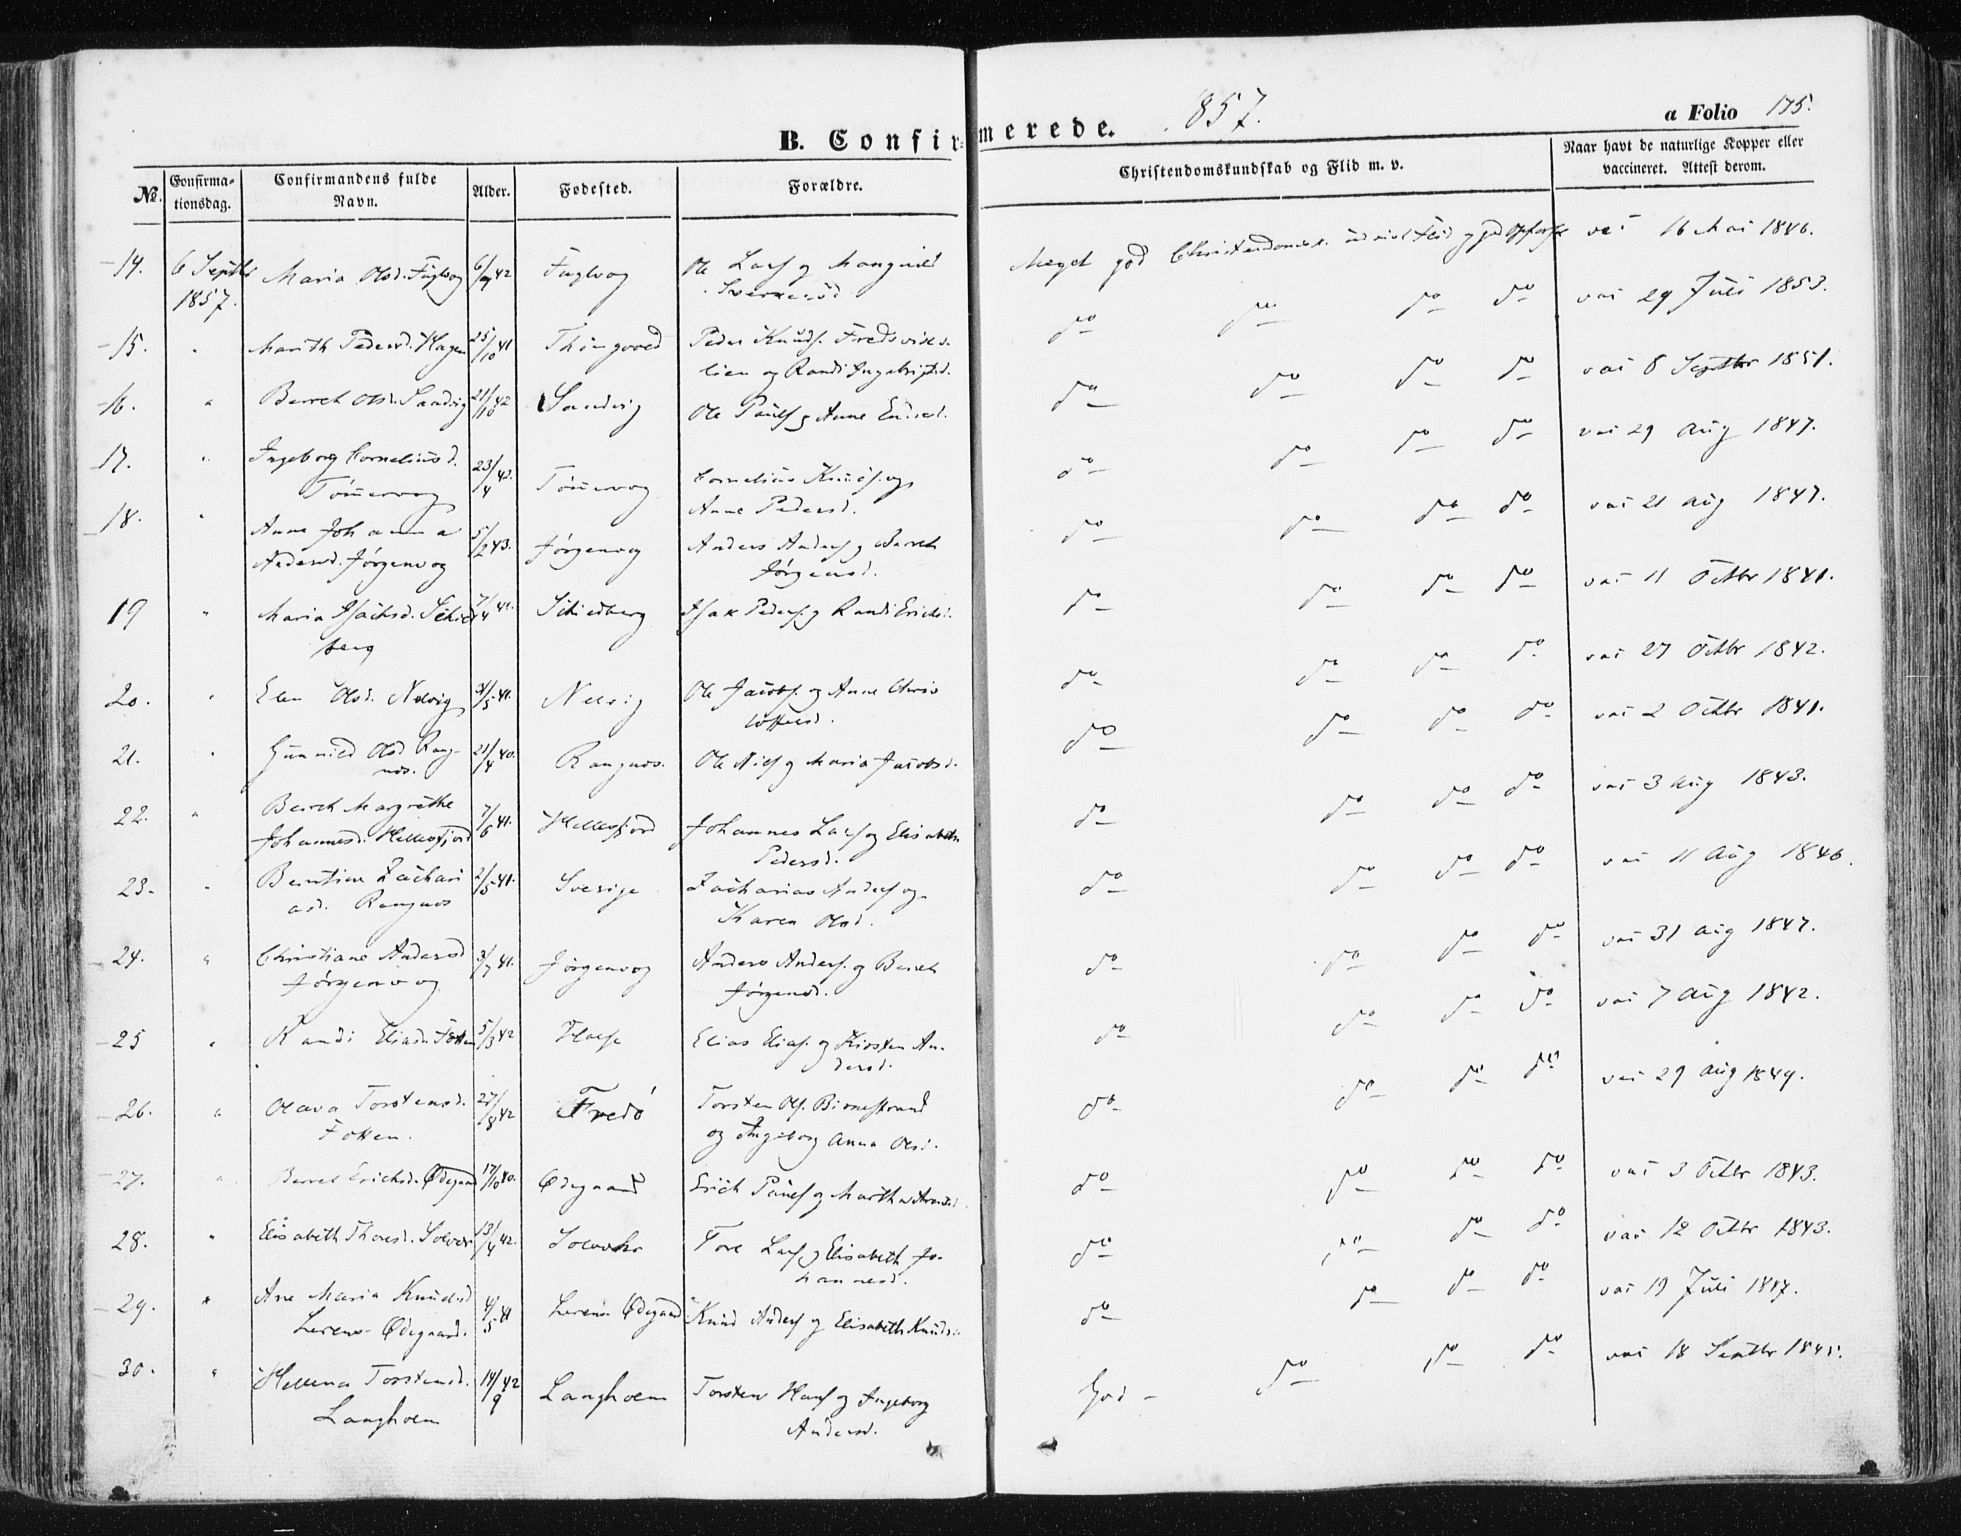 B. Confirmerede. 1857. a Folio 175.
No. Confirmationsdag. Confirmandens fulde Navn. Alder. Fødested. Forældre. Christendomskundskab og Flid m. v. Naar havt de naturlige Kopper eller vaccineret. Attest derom.
14. 6 Septbr 1857. Maria Olsd. Fuglvog 6/9 42 Fuglvog Ole Lars. og Mangnild Meget god Christendomsk. Flid og god Opførsel vac 16 Mai 1846.
15. " Marith Pedersd. Hagen 25/10 41 Thingvoed Peder Knuds. Fredsvikslien og Randi Ingebrigtsd. do do do do vac 29 Juli 1853.
16. " Berret Olsd. Sandvig 21/10 42 Sandvig Ole Pauls. og Anne Endresd. do do do do vac 8 Septbr 1851.
17. " Ingeborg Corneliusd. Tömmervog 23/4 42. Tömmervog Cornelius Knuds. og Anne Pedersd. do do do do vac 29 Aug 1847.
18. " Anne Johanna Andersd. Jørgenvog 5/2 43. Jørgenvog Anders Anders. og Berret Jørgensd. do do do do vac 21 Aug 1847.
19 " Maria Isachsd. Schiedberg 7/4 41. Schiedberg Isak Peders. og Randi Erichsd. do do do do vac 11 Octbr 1841.
20. " Elen Olsd. Nelvig 31/5 41. Nelvig Ole Jacobs. og Anne Christoffersd. do do do do vac 27 Octbr 1842.
21. " Gunnild Olsd Rangnos. 21/4 40. Rangnos. Ole Niels. og Maria Jacobsd. do do do do vac 2 Octbr 1841.
22. " Berret Margrethe Johannesd. Hellesfjord 7/6 41. Hellesfjord Johannes Lars. og Elisabeth Pedersd. do do do do vac 3 Aug 1843.
23. " Berntine Zachariasd. Rangnos 2/5 41. Sverige Zacharias Anders. og Karen Olsd. do do do do vac 11 Aug 1846.
24. " Christiane Andersd Jørgenvog 3/7 41. Jørgenvog Anders Anders. og Berret Jørgensd. do do do do vac 31 Aug 1847.
25 " Randi Eliasd. Fotten 5/3 42 Elias Elias. og Kirsten Andersd. do do do do vac 7 Aug 1842.
26. " Olava Torstensd. Fotten. 27/8 42 Fredö Torsten Ols. Birnestrand og Ingeborg Anna Olsd. do do do do vac 29 Aug 1849.
27. " Berret Erichsd. Ødegaard 17/10 40. Ødegaard Erich Pauls. og Martha do do do do vac 3 Octbr 1843.
28. " Elisabeth Thoresd. 13/4 42. Tore Lars. og Elisabeth Johannesd. do do do do vac 12 Octbr 1843.
29. " Ane Maria Knudsd Lerens-Ødegaard. 4/5 41 Lerens Ødegaard Knud Anders. og Elisabeth Knudsd. do do do do vac 19 Juli 1847.
30. " Hellena Torstensd. Langholm 14/9 42 Langholm Torsten Hans. og Ingeborg Andersd. God - do do do vac 18 Septbr 1845.